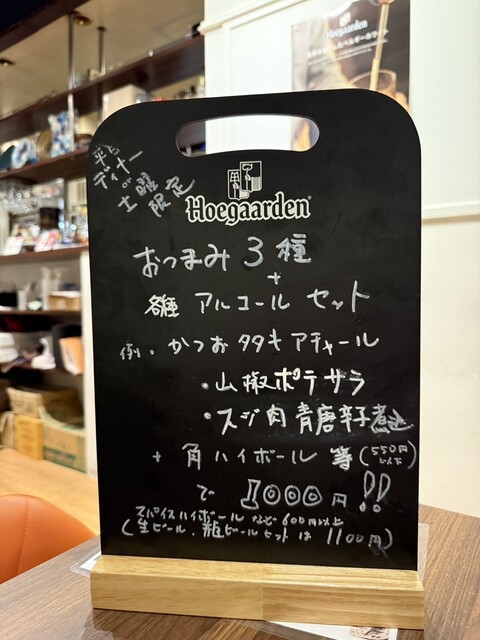 Hoegaarden
平日
ディナー
or
土曜
限定
Hoegaarden
おつまみ 3種
+
各種 アルコール セット
例・かつおタタキアチャール
・山椒ポテサラ
・スジ肉青唐辛子煮込
+ 角ハイボール 等 (550円以下)
で 1000円!!
スパイスハイボールなど600円以上
(生ビール、瓶ビールセットは1100円)